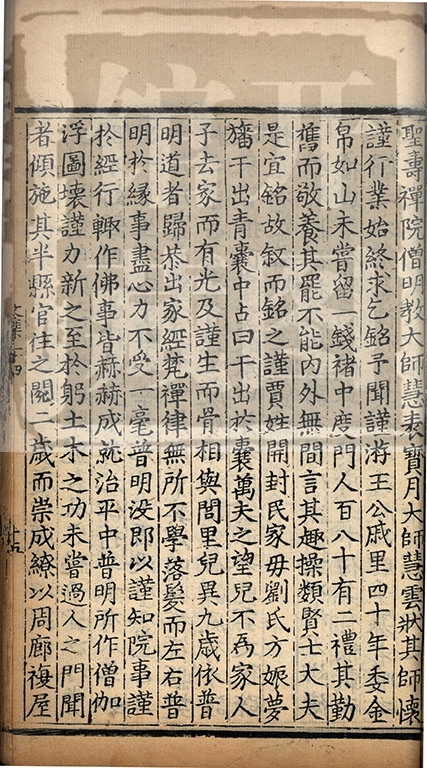 聖壽禪院僧明教大師慧表寶月大師慧雲狀其師懷
謹行業始終求乞銘予聞謹游王公戚里四十年委金
帛如山未嘗留一錢褚中度門人百八十有二禮其勤
舊而敬養其罷不能內外無間言其趣操類賢士大夫
是宜銘故敘而銘之謹賈姓開封民家毋劉氏方娠夢
旛干出青囊中占曰干出於囊萬夫之望兒不為家人
子去家而有光及謹生而骨相與閭里兒異九歲依普
明道者歸恭出家經梵禪律無所不學落髮而左右普
明於緣事盡心力不受一毫普明沒即以謹知院事謹
於經行輙作佛事皆赫赫成就治平中普明所作僧伽
浮圖壞謹力新之至於躬土木之功未嘗過人之門聞
者傾施其半縣官住之閱二歲而崇成繚以周廊複屋